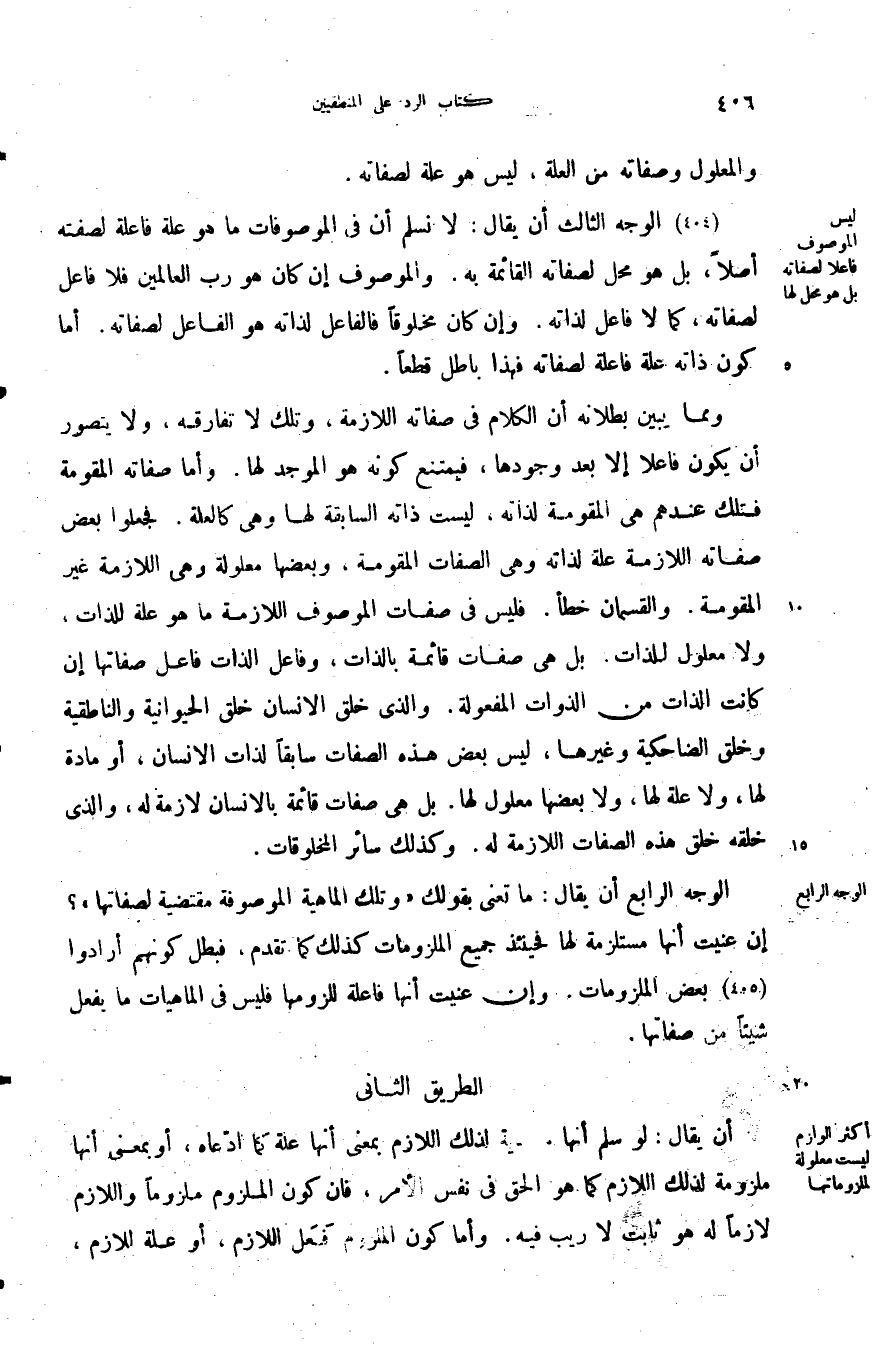 ٤٠٦
كتاب الرد على المنطقيين
والمعلول وصفاته من العلة ، ليس هو علة لصفاته .
ليس
الموصوف
فاعلا لصفاته
بل هو محل لها
(٤٠٤) الوجه الثالث أن يقال : لا نسلم أن فى الموصوفات ما هو علة فاعلة لصفته
أصلاً ، بل هو محل لصفاته القائمة به . والموصوف إن كان هو رب العالمين فلا فاعل
لصفاته ، كما لا فاعل لذاته . وإن كان مخلوقاً فالفاعل لذاته هو الفاعل لصفاته . أما
٥
كون ذاته علة فاعلة لصفاته فهذا باطل قطعاً .
ومما يبين بطلانه أن الكلام فى صفاته اللازمة ، وتلك لا تفارقه ، ولا يتصور
أن يكون فاعلا إلا بعد وجودها ، فيمتنع كونه هو الموجد لها . وأما صفاته المقومة
فتلك عندهم هى المقومة لذاته ، ليست ذاته السابقة لها وهى كالعلة . فجعلوا بعض
صفاته اللازمة علة لذاته وهى الصفات المقومة ، وبعضها معلولة وهى اللازمة غير
١٠
المقومة . والقسمان خطأ . فليس فى صفات الموصوف اللازمة ما هو علة للذات ،
ولا معلول للذات . بل هى صفات قائمة بالذات ، وفاعل الذات فاعل صفاتها إن
كانت الذات من الذوات المفعولة . والذى خلق الانسان خلق الحيوانية والناطقية
وخلق الضاحكية وغيرها ، ليس بعض هذه الصفات سابقاً لذات الانسان ، أو مادة
لها ، ولا علة لها ، ولا بعضها معلول لها . بل هى صفات قائمة بالانسان لازمة له ، والذى
١٥
خلقه خلق هذه الصفات اللازمة له . وكذلك سائر المخلوقات .
الوجه الرابع
الوجه الرابع أن يقال : ما تعنى بقولك « وتلك الماهية الموصوفة مقتضية لصفاتها » ؟
إن عنيت أنها مستلزمة لها فحينئذ جميع الملزومات كذلك كما تقدم ، فبطل كونهم أرادوا
(٤٠٥) بعض الملزومات . وإن عنيت أنها فاعلة للزومها فليس فى الماهيات ما يفعل
شيئاً من صفاتها .
٢٠
الطريق الثانى
أكثر الوازم
ليست معلولة
للزوماتها
أن يقال : لو سلم أنها . لذلك اللازم بمعنى أنها علة كما ادّعاه ، أو بمعنى أنها
ملزومة لذلك اللازم كما هو الحق فى نفس الأمر ، فان كون الملزوم ملزوماً واللازم
لازماً له هو ثابت لا ريب فيه . وأما كون الملزوم اللازم ، أو علة للازم ،